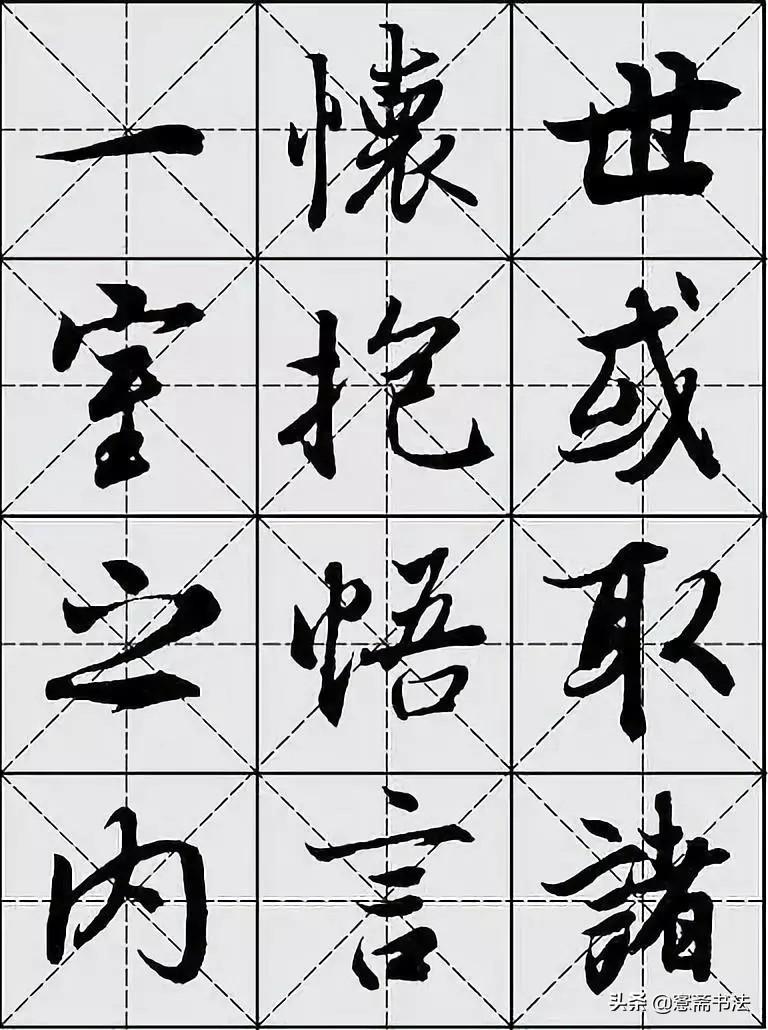 世或取諸
懷抱悟言
一室之内
头条 @窓斋书法